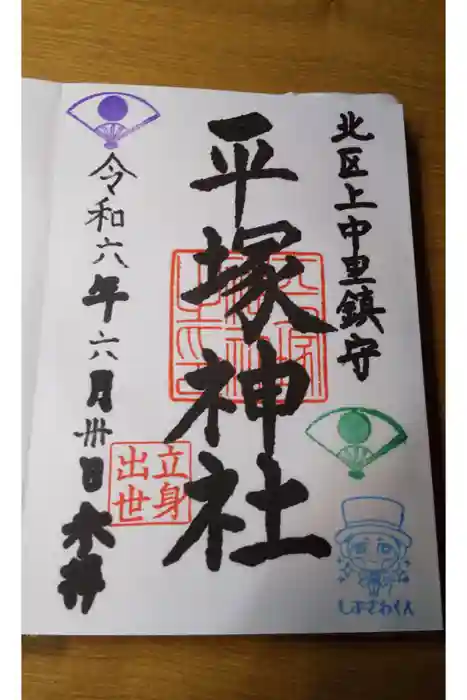 北区上中里鎮守
平塚神社
立身
出世
令和六年六月卅日
しぶさわくん